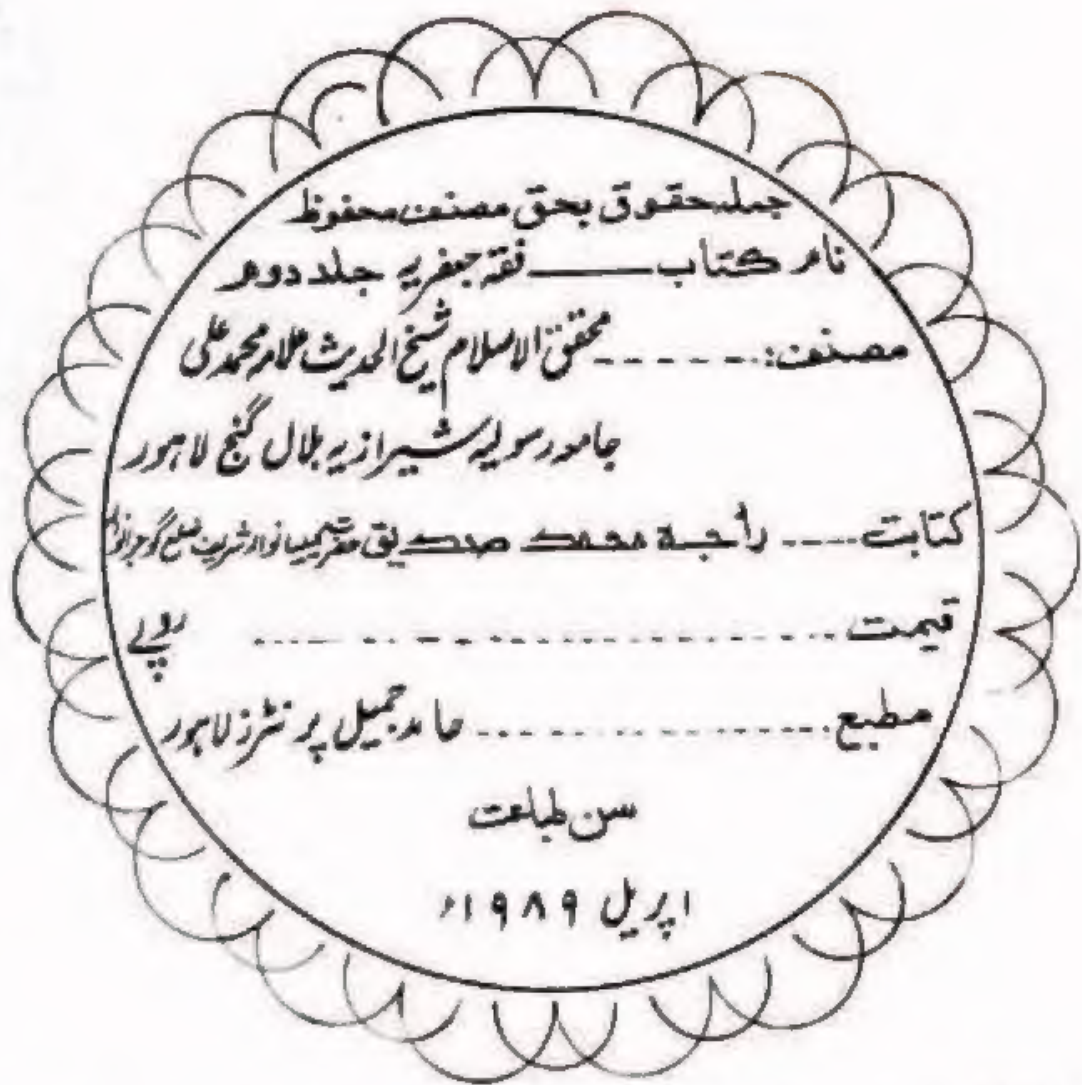 جملہ حقوق بحق مصنف محفوظ
نام کتاب ــــــ فقہ جعفریہ جلد دوم
مصنف: ------- محقق الاسلام شیخ الحدیث علامہ محمد علی
جامعہ رسولیہ شیرازیہ بلال گنج لاہور
کتابت ---- راجہ محمد صدیق حضرت کیلیانوالہ شریف ضلع گوجرانوالہ
قیمت .................... روپے
مطبع .................... حامد جمیل پرنٹرز لاہور
سن طباعت
اپریل ۱۹۸۹ء